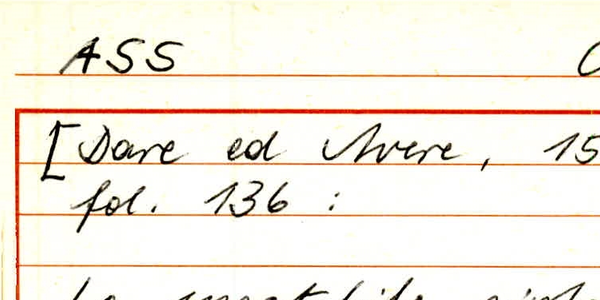 ASS
[Dare ed Avere, 15
fol. 136 :